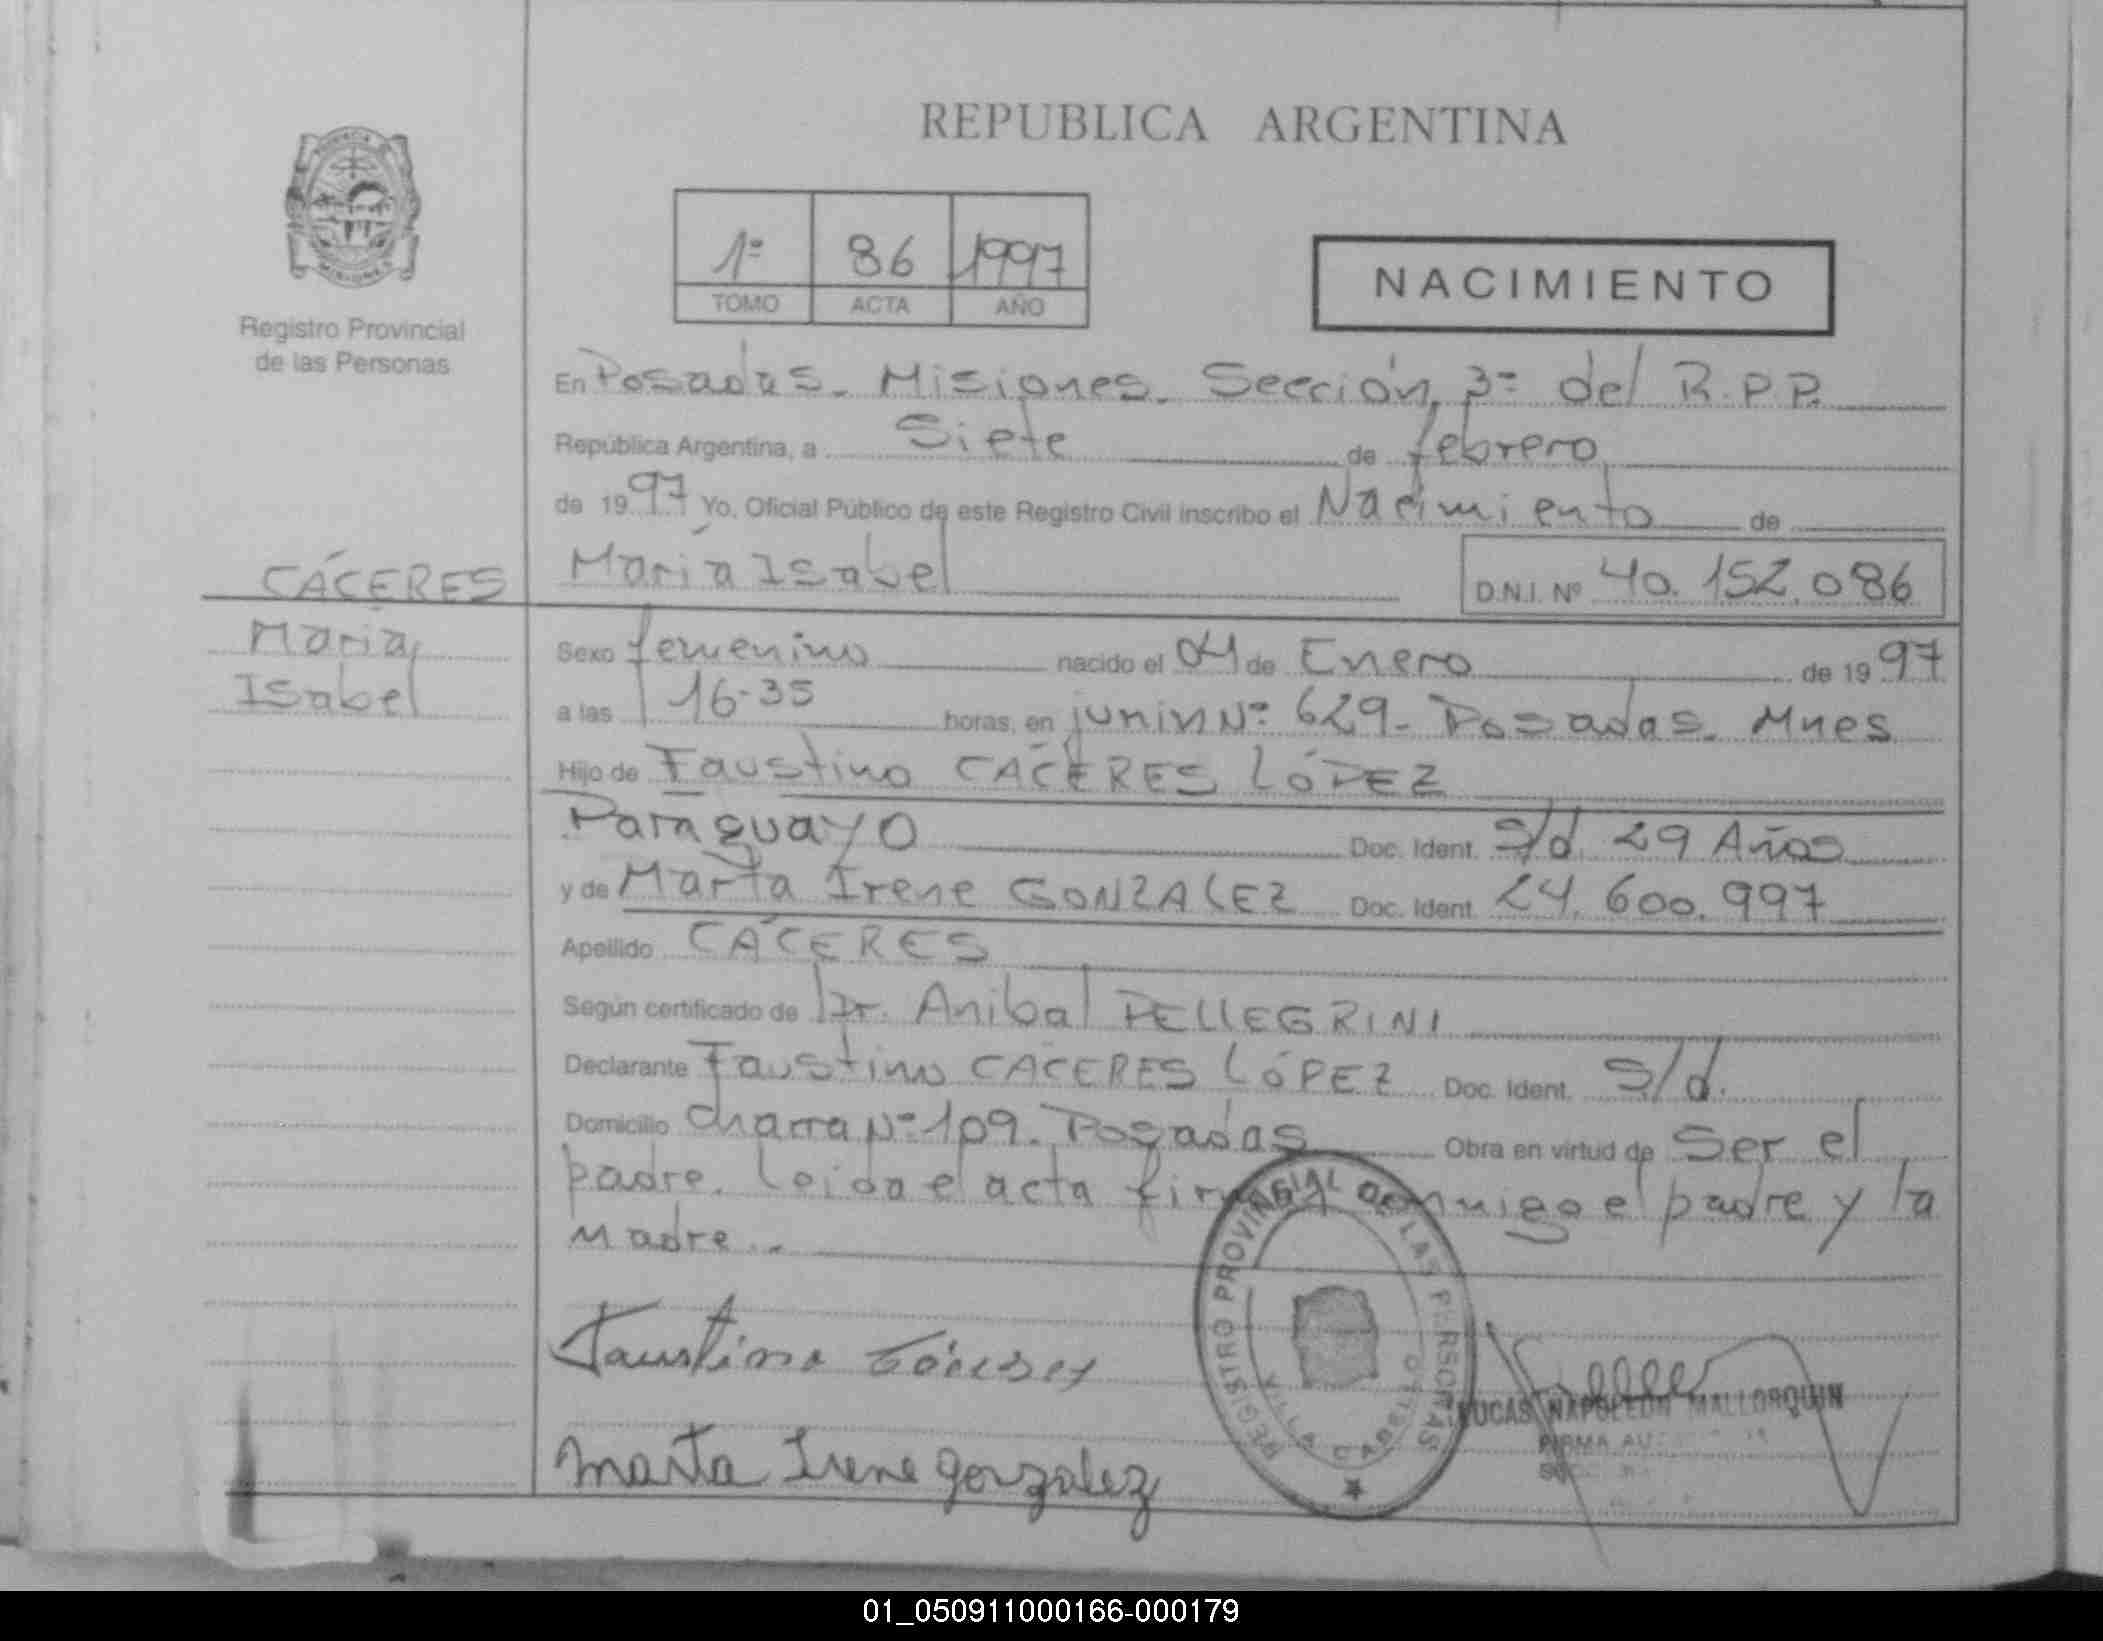 REPUBLICA ARGENTINA
1º 86 1997
TOMO ACTA AÑO
NACIMIENTO
Registro Provincial
de las Personas
En Posadas. Misiones. Sección 3ª del R.P.P.
República Argentina, a Siete de febrero
de 1997 Yo, Oficial Público de este Registro Civil inscribo el Nacimiento de
CÁCERES
María Isabel D.N.I. Nº 40.152.086
María
Isabel
Sexo femenino nacido el 04 de Enero de 1997
a las 16-35 horas, en junín Nº 629- Posadas. Mnes
Hijo de Faustino CÁCERES LÓPEZ
Paraguayo Doc. Ident. S/d. 29 Años
y de Marta Irene GONZALEZ Doc. Ident. 24.600.997
Apellido CÁCERES
Según certificado de Dr. Anibal PELLEGRINI
Declarante Faustino CÁCERES LÓPEZ Doc. Ident. S/d.
Domicilio Nº 109. Posadas Obra en virtud de Ser el
padre. Leida el acta conmigo el padre y la
madre.
REGISTRO PROVINCIAL DE LAS PERSONAS
VILLA CABELLO
Faustino Cáceres
LUCAS NAPOLEON MALLORQUIN
FIRMA
Marta Irene gonzalez
01_050911000166-000179